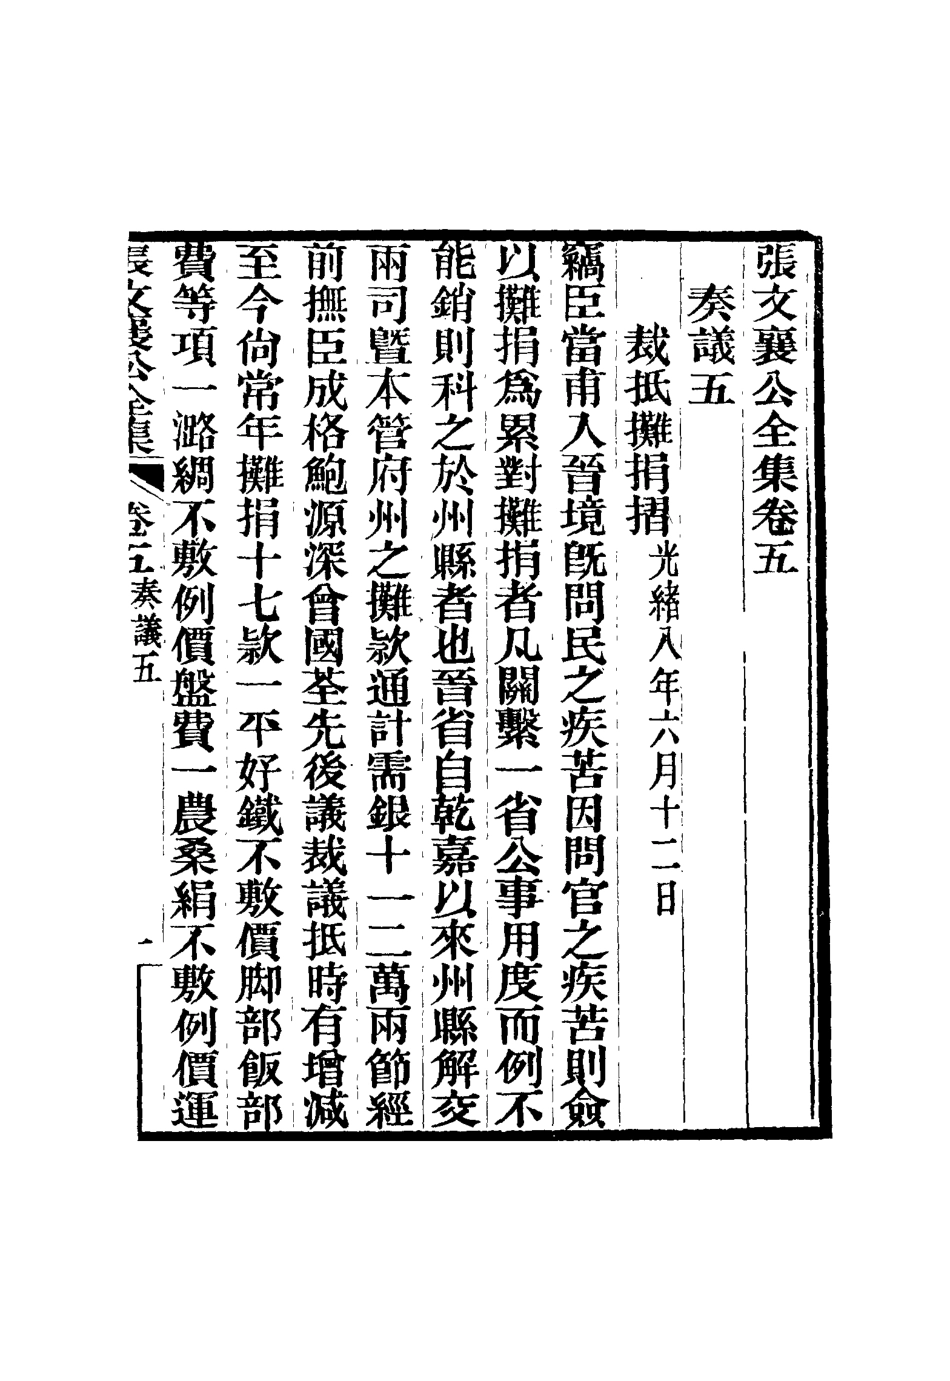 張文襄公全集卷五
奏議五
裁抵攤捐摺光緒八年六月十二日
竊臣當甫入晉境旣問民之疾苦因問官之疾苦則僉
以攤捐爲累對攤捐者凡關繫一省公事用度而例不
能銷則科之於州縣者也晉省自乾嘉以來州縣解交
兩司曁本管府州之攤款通計需銀十一二萬兩節經
前撫臣成格鮑源深曾國荃先後議裁議抵時有增減
至今尙常年攤捐十七款一平好鐵不敷價脚部飯部
費等項一潞綢不敷例價盤費一農桑絹不敷例價運
張文襄公全集 卷五奏議五 一